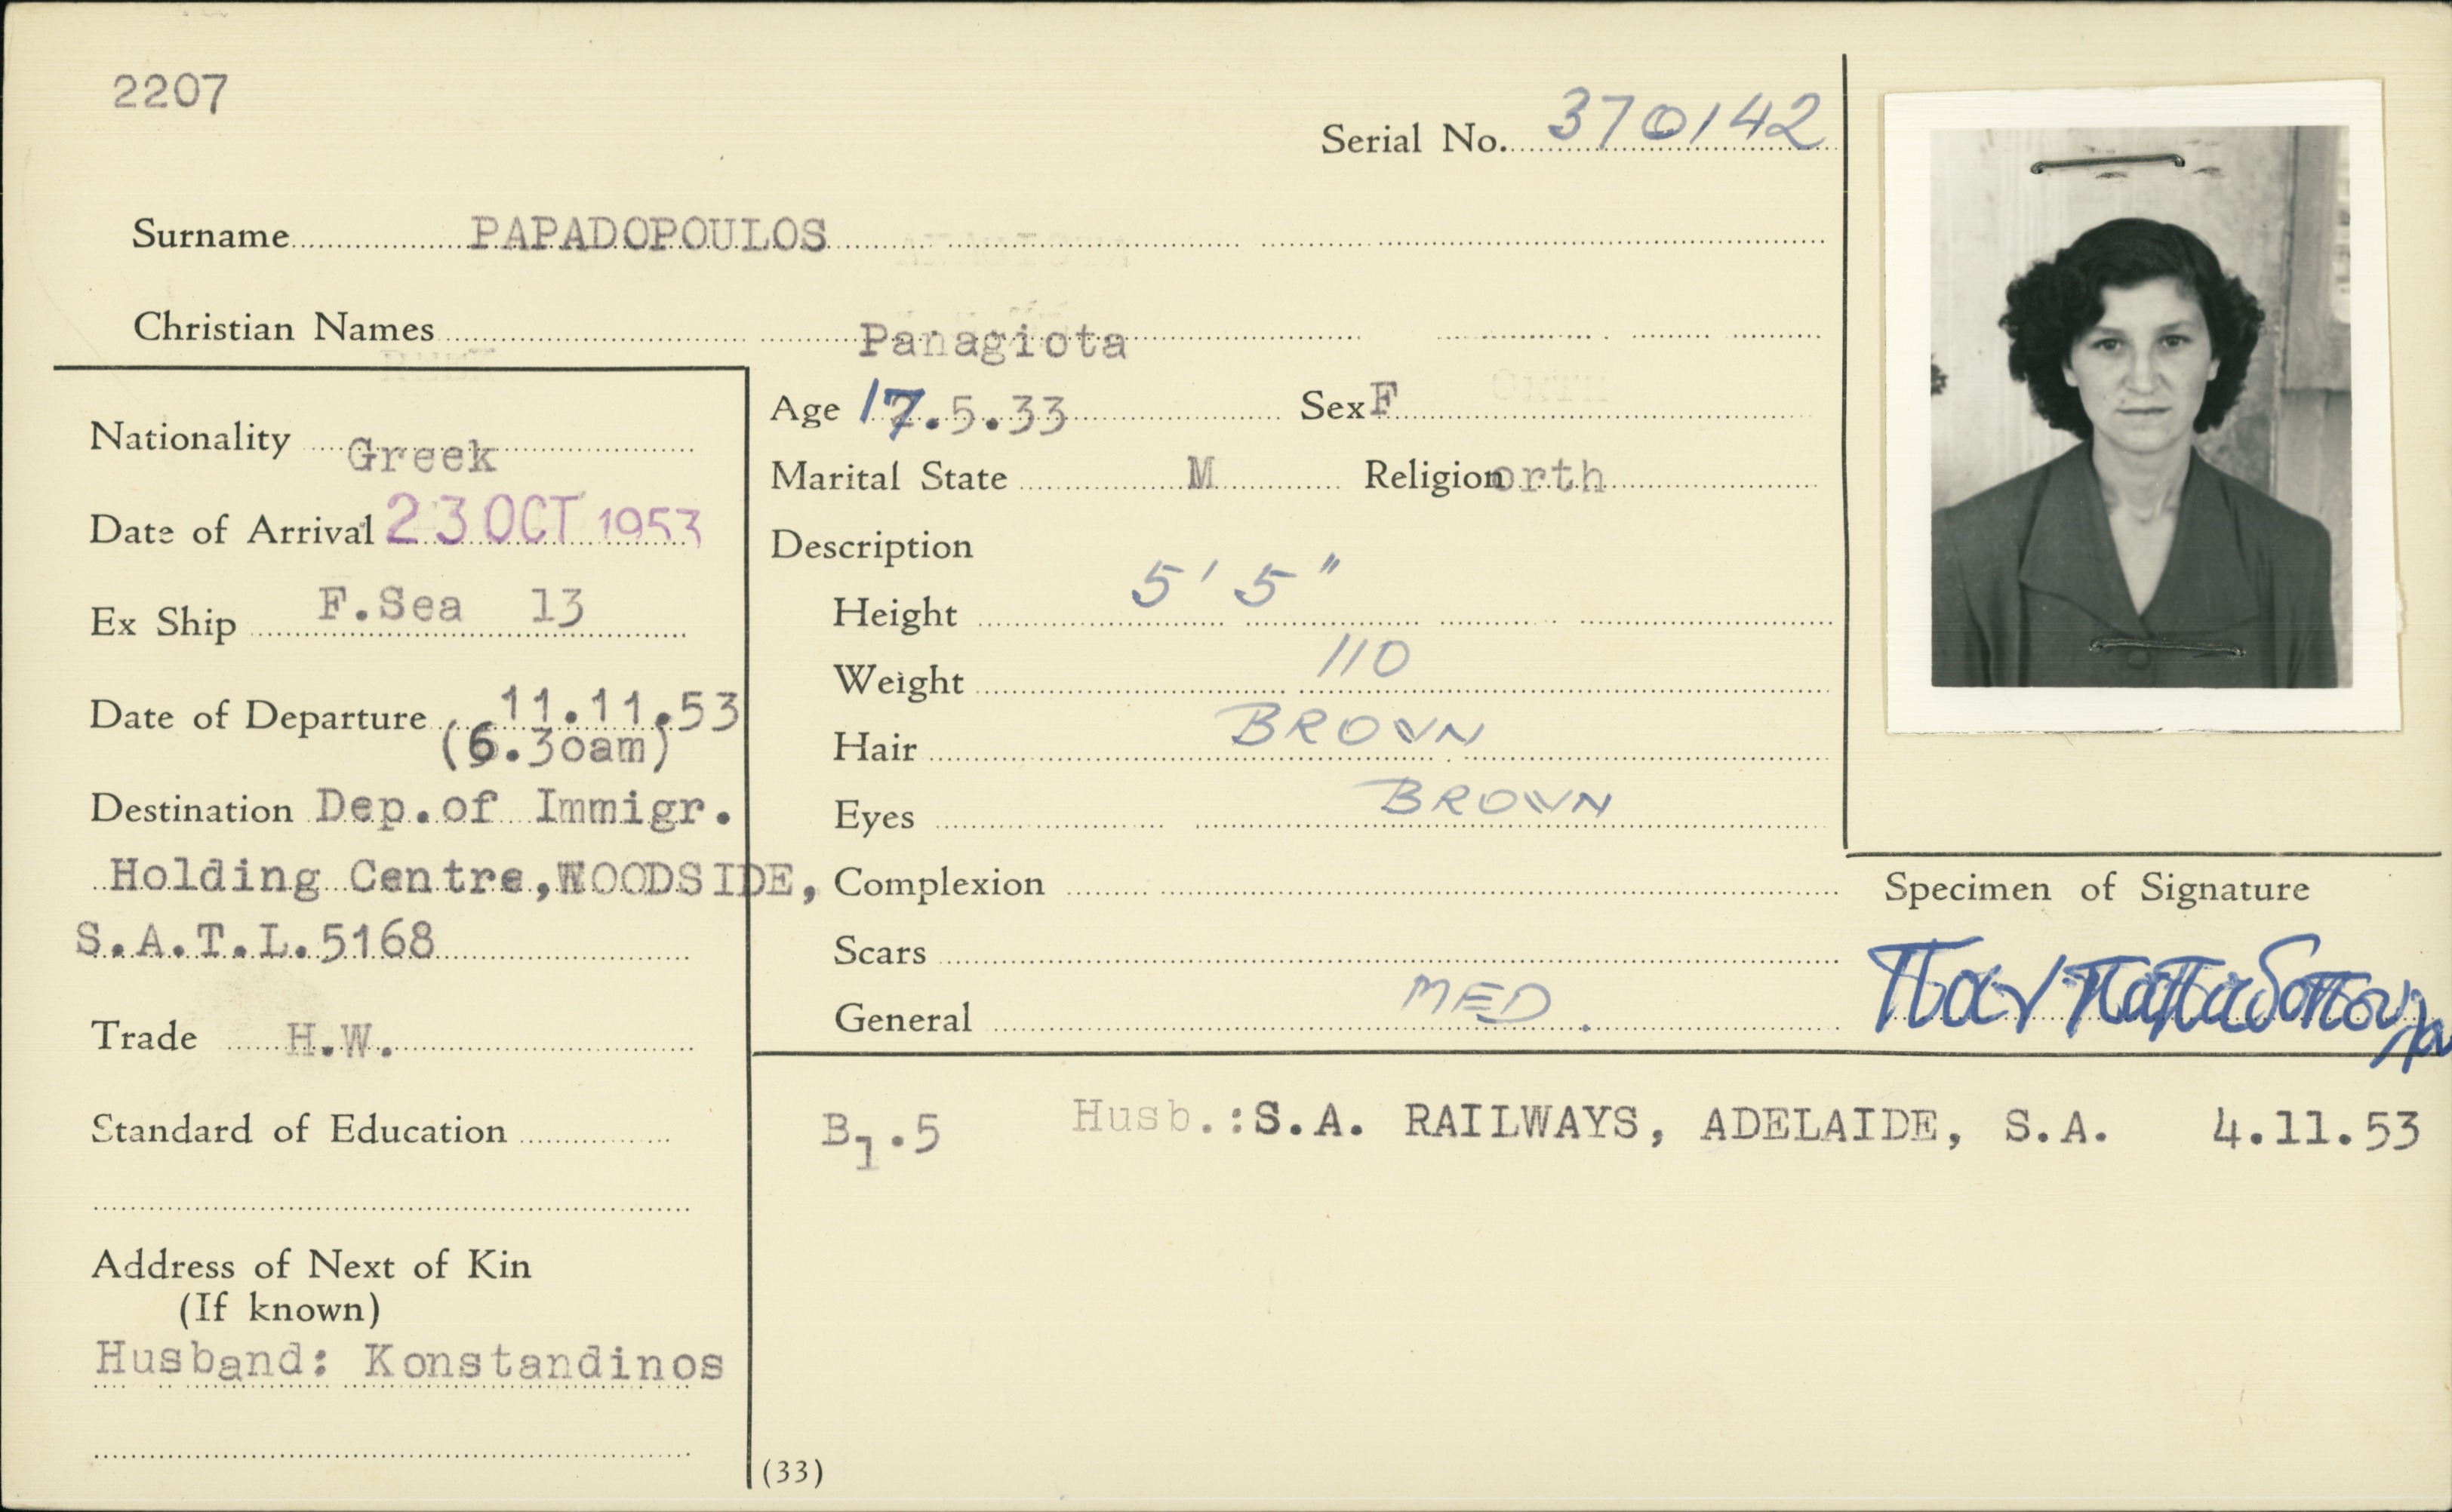 2207
Serial No. 370142
Surname PAPADOPOULOS
Christian Names Panagiota
Nationality Greek
Date of Arrival 23 OCT 1953
Ex Ship F.Sea 13
Date of Departure 11.11.53
(6.30am)
Destination Dep.of Immigr.
Holding Centre,WOODSIDE,
S.A.T.L.5168
Trade H.W.
Standard of Education
Address of Next of Kin
(If known)
Husband: Konstandinos
Age 17.5.33 Sex F
Marital State M Religion orth
Description
Height 5' 5"
Weight 110
Hair BROWN
Eyes BROWN
Complexion
Scars
General MED.
Specimen of Signature
Παν Παπαδοπούλου
B1.5 Husb.:S.A. RAILWAYS, ADELAIDE, S.A. 4.11.53
(33)